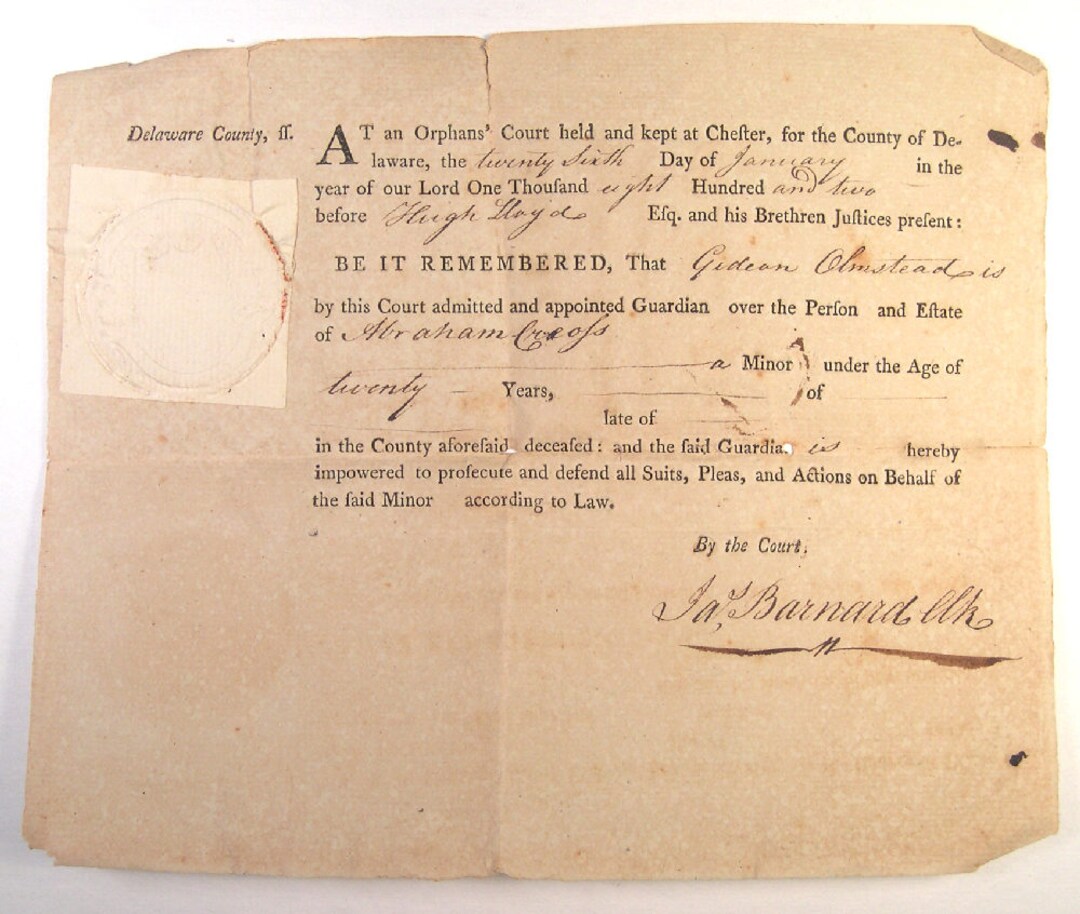 Delaware County, ſſ.
AT an Orphans' Court held and kept at Cheſter, for the County of De-
laware, the twenty Sixth Day of January in the
year of our Lord One Thouſand eight Hundred and two
before Hugh Lloyd Eſq. and his Brethren Juſtices preſent:
BE IT REMEMBERED, That Gideon Olmstead is
by this Court admitted and appointed Guardian over the Perſon and Eſtate
of Abraham
a Minor under the Age of
twenty Years, of
late of
in the County aforeſaid deceaſed: and the ſaid Guardia is hereby
impowered to proſecute and defend all Suits, Pleas, and Actions on Behalf of
the ſaid Minor according to Law.
By the Court,
Jas. Barnard Clk